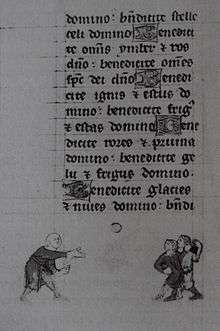 domino: bñdicite stelle
celi domino Benedi
cite omīs ymber et ros
dño: benedicite omēs
spc dei dño Benedi
cite ignis et estus do
mino: benedicite frig⁹
et estas domino Bene
dicite rores et pruina
domino: benedicite ge
lu et frigus domino.
Benedicite glacies
et niues domino: bñdi